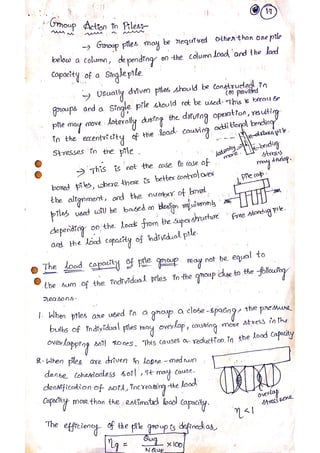 17
Group Action in Piles:-
→ Group piles may be required other than one pile
below a column, depending on the column load and the load
Capacity of a Single pile.
→ Usually driven piles should be constructed in
(or provided)
groups and a Single pile should not be used. This is because
pile may move laterally during the driving operation, resulting
in the eccentricity of the load causing additional bending
Stresses in the pile.
laterally
move
bending
stress
may develop.
→ This is not the case in case of
bored piles, where there is better control over
the alignment, and the number of bored
piles used will be based on design requirements
depending on the loads from the Superstructure
and the load capacity of individual pile.
pile cap
Free standing pile.
The load capacity of pile group may not be equal to
the sum of the individual piles in the group due to the following
reasons.
1. When piles are used in a group a close-spacing, the pressure
bulbs of Individual piles may overlap, causing more stress in the
overlapping soil zones. This causes a reduction in the load capacity
2. When piles are driven in loose-medium
dense cohesionless soil, it may cause
densification of soil, increasing the load
Capacity more than the estimated load capacity.
overlap
stress zone
η<1
The efficiency of the pile group is defined as,
ηg = Qug / N Qup ×100